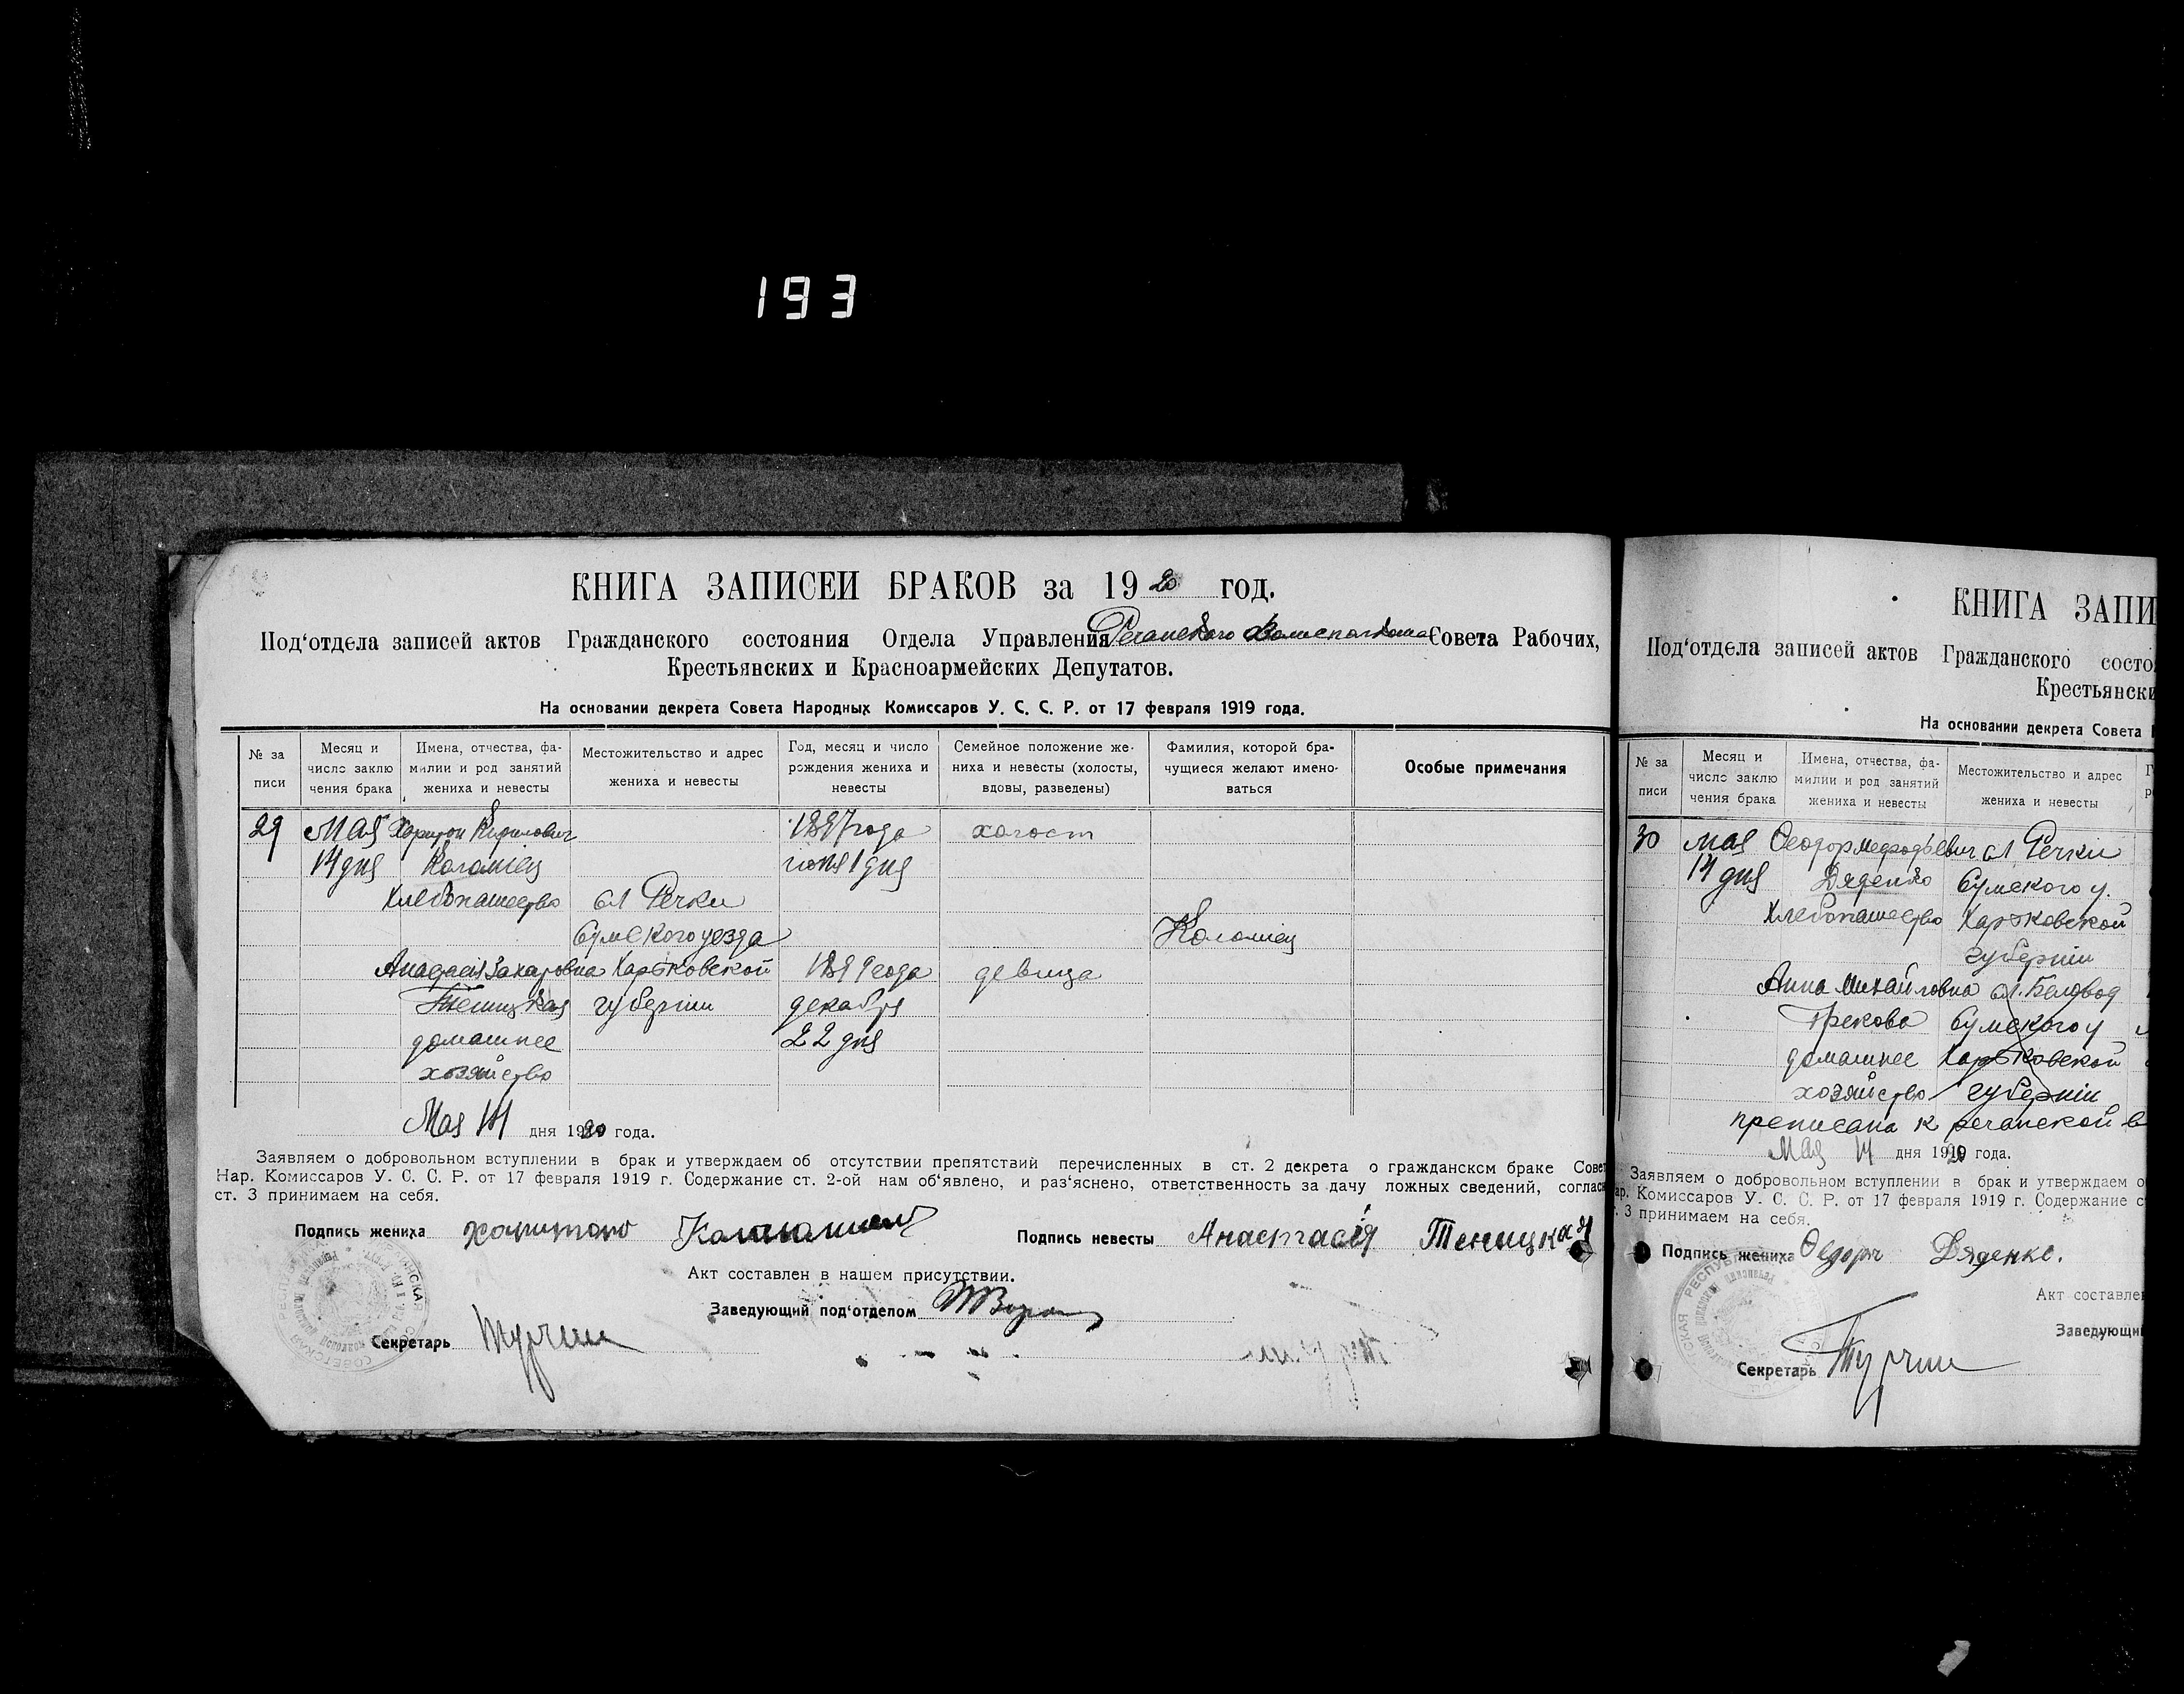 193
КНИГА ЗАПИСЕЙ БРАКОВ за 1920 год.
Под‘отдела записей актов Гражданского состояния Отдела Управления Речанского Совета Рабочих,
Крестьянских и Красноармейских Депутатов.
На основании декрета Совета Народных Комиссаров У. С. С. Р. от 17 февраля 1919 года.
№ за писи
Месяц и число заклю чения брака
Имена, отчества, фа- милии и род занятий жениха и невесты
Местожительство и адрес жениха и невесты
Год, месяц и число рождения жениха и невесты
Семейное положение же- ниха и невесты (холосты, вдовы, разведены)
Фамилия, которой бра- чущиеся желают имено- ваться
Особые примечания
29 Мая Харитон Кирилович 1897 года холост
14 дня Коломіец 1 дня
Хлебопашество сл Речки
Сумского уезда Коломіец
Захаровна Харьковской 1899 года девица
Теницкая губернии декабря
домашнее 22 дня
хозяйство
Мая 14 дня 1920 года.
Заявляем о добровольном вступлении в брак и утверждаем об отсутствии препятствий перечисленных в ст. 2 декрета о гражданском браке Совет
Нар. Комиссаров У. С. С. Р. от 17 февраля 1919 г. Содержание ст. 2-ой нам об‘явлено, и раз‘яснено, ответственность за дачу ложных сведений, соглас
ст. 3 принимаем на себя.
Подпись жениха Харитонъ Подпись невесты Анастасія Теницкая
Акт составлен в нашем присутствии.
Заведующий под‘отделом
Секретарь Турчин
КНИГА ЗАПИ
Под‘отдела записей актов Гражданского состо
Крестьянски
На основании декрета Совета
№ за писи
Месяц и число заклю чения брака
Имена, отчества, фа- милии и род занятий жениха и невесты
Местожительство и адрес жениха и невесты
30 мая Феодор Мефодьевич сл Речки
14 дня Дяденко Сумского у.
Хлебопашество Харьковской
губернии
Анна Михайловна сл. Беловод
Грекова Сумского у
домашнее Харьковской
хозяйство губерніи
преписана к речанской в
Мая 14 дня 1920 года.
Заявляем о добровольном вступлении в брак и утверждаем о
ар. Комиссаров У. С. С. Р. от 17 февраля 1919 г. Содержание с
. 3 принимаем на себя.
Подпись жениха Ѳедоръ Дяденко.
Акт составле
Заведующи
Секретарь Турчин